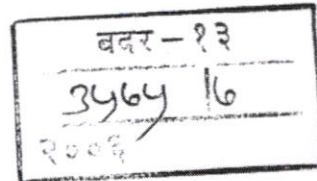 बदर - १३
३५७५ |७
२००६